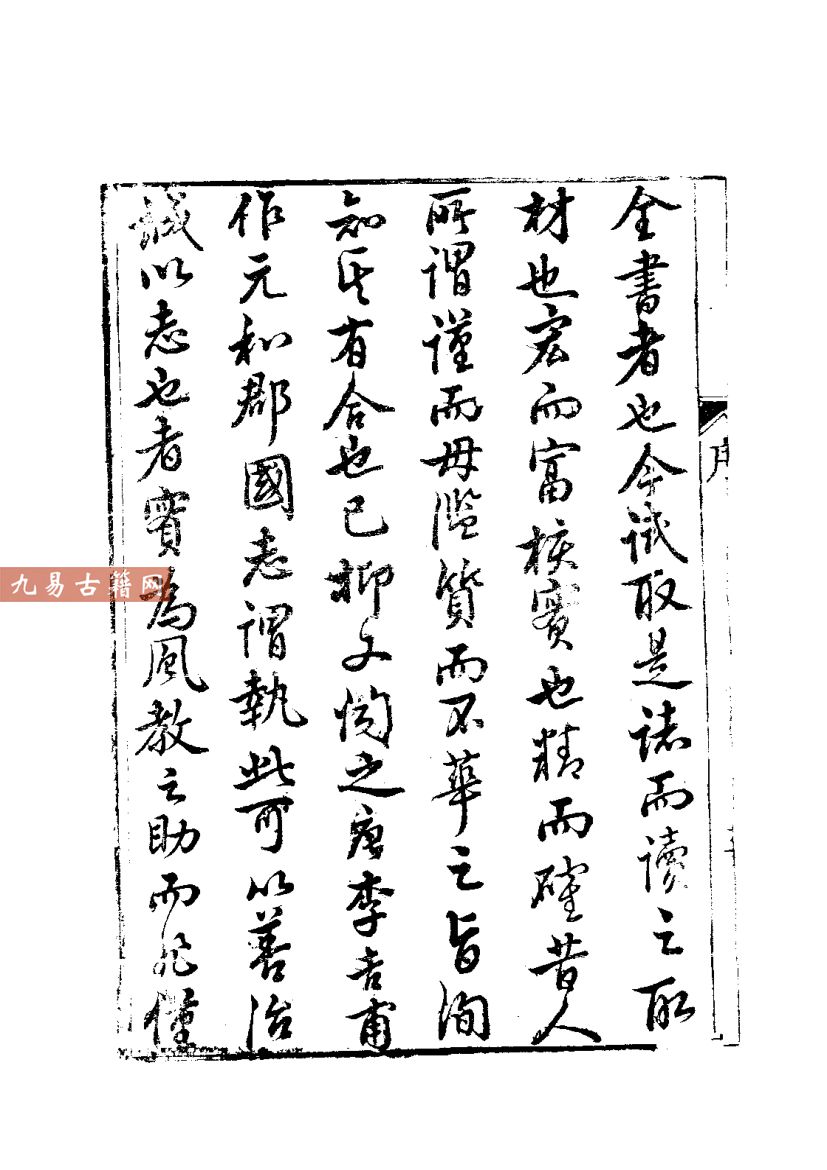 全書者也今試取是誌而讀之取
材也宏而富核實也精而確昔人
所謂謹而毋濫質而不華之旨洵
知其有合也已抑又聞之唐李吉甫
作元和郡國志謂執此可以善治
誠以志也者實為風教之助而非僅
序
九易古籍网